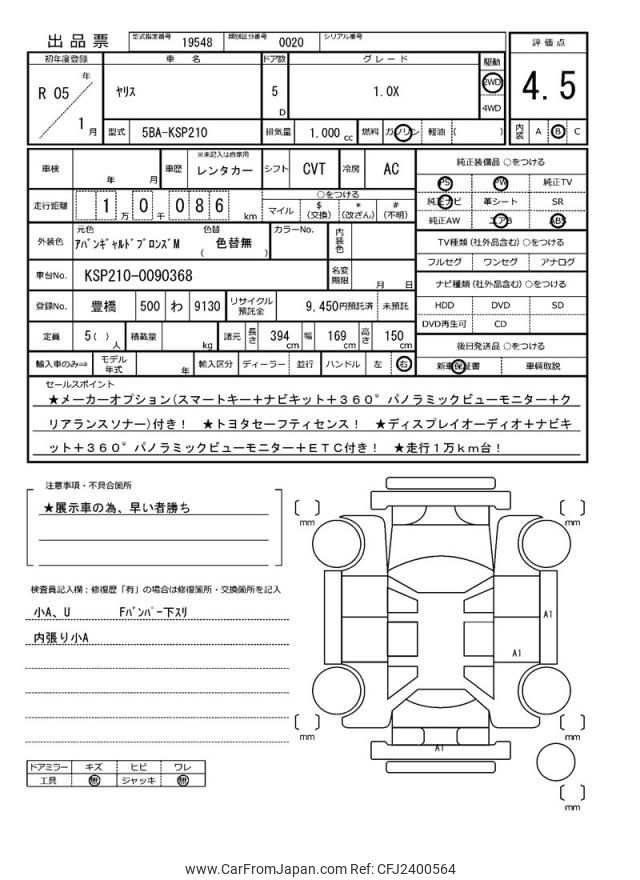 出品票 型式指定番号 19548 類別区分番号 0020 シリアル番号
初年度登録 車名 ドア数 グレード 駆動 評価点
R 05 年 1 月 ヤリス 5 D 1.0X 2WD 4WD 4.5
型式 5BA-KSP210 排気量 1.000 cc 燃料 ガソリン 軽油 ( ) 内装 A B C
車検 年 月 車歴 ※未記入は自家用 レンタカー シフト CVT 冷房 AC
走行距離 1 万 0 千 0 8 6 km ○をつける マイル $(交換) *(改ざん) #(不明)
外装色 元色 アバンギャルドブロンズM 色替 ( 色替無 ) カラーNo. 内装色
車台No. KSP210-0090368 名変期限 月 日
登録No. 豊橋 500 わ 9130 リサイクル預託金 9,450円預託済 未預託
定員 5( ) 人 積載量 kg 諸元 長さ 394 cm 幅 169 cm 高さ 150 cm
輸入車のみ⇒ モデル年式 年 輸入区分 ディーラー 並行 ハンドル 左 右
純正装備品 ○をつける
PS PW 純正TV
純正ナビ 革シート SR
純正AW エアB ABS
TV種類(社外品含む)○をつける
フルセグ ワンセグ アナログ
ナビ種類(社外品含む)○をつける
HDD DVD SD
DVD再生可 CD
後日発送品 ○をつける
新車保証書 車輌取説
セールスポイント
★メーカーオプション(スマートキー+ナビキット+360°パノラミックビューモニター+ク
リアランスソナー)付き! ★トヨタセーフティセンス! ★ディスプレイオーディオ+ナビキ
ット+360°パノラミックビューモニター+ETC付き! ★走行1万km台!
注意事項・不具合箇所
★展示車の為、早い者勝ち
検査員記入欄:修復歴「有」の場合は修復箇所・交換箇所を記入
小A、U Fバンパー下スリ
内張り小A
ドアミラー キズ ヒビ ワレ
工具 無 ジャッキ 無
mm
mm
A1
A1
mm
mm
A1
mm
www.CarFromJapan.com Ref: CFJ2400564